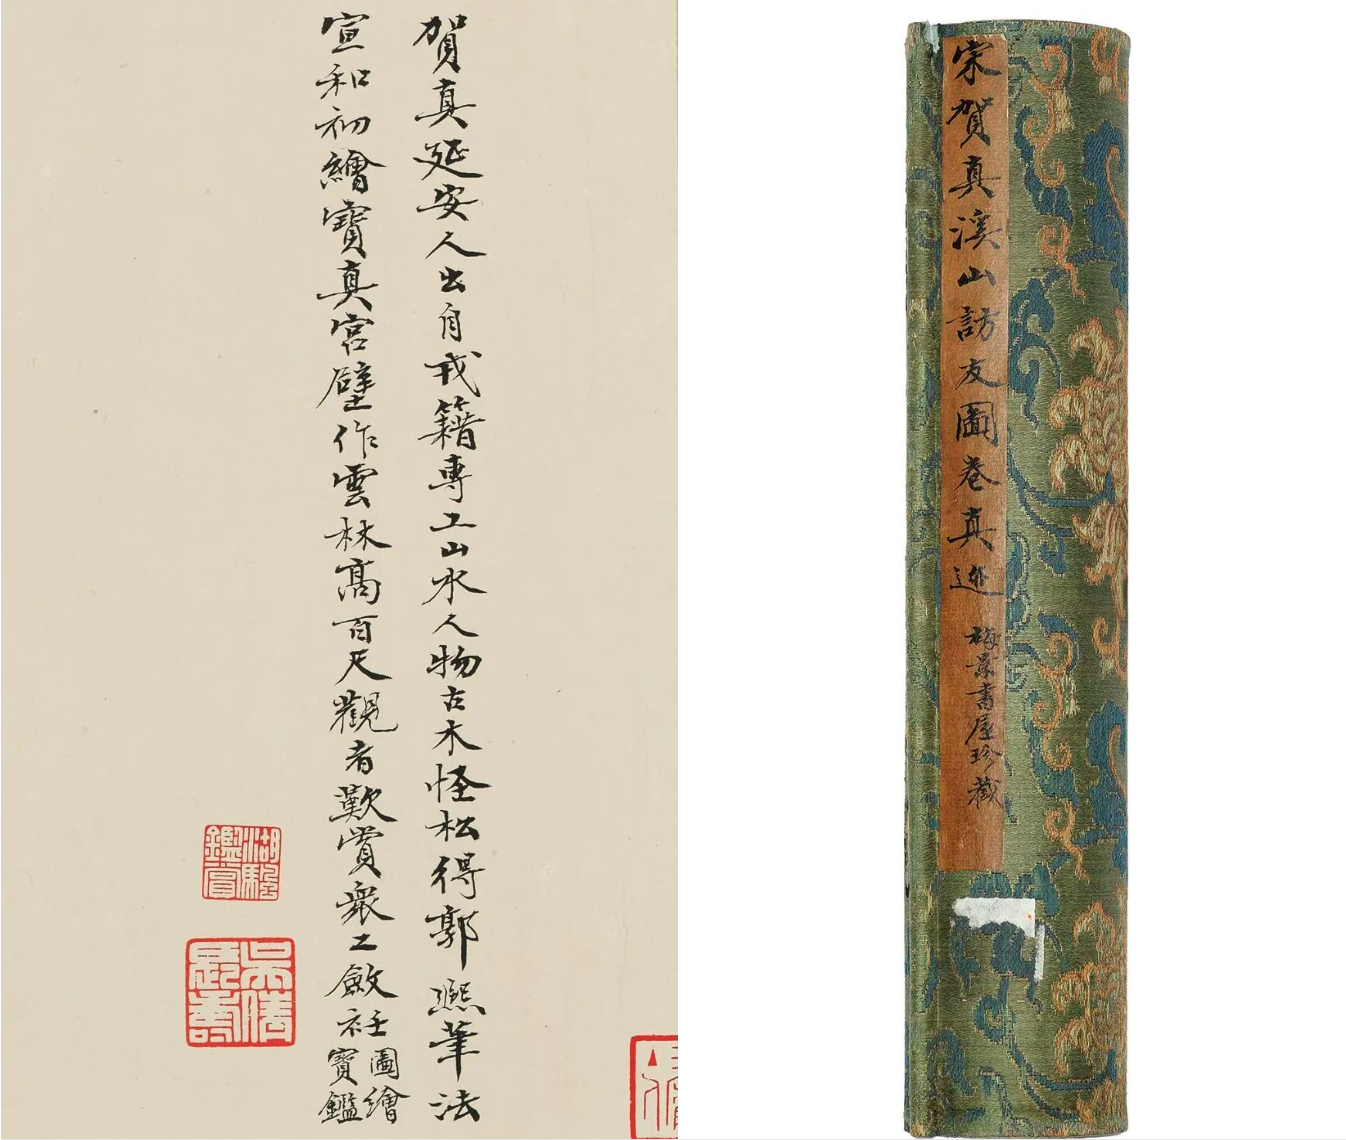 賀真延安人出自戎籍專工山水人物古木怪松得郭熙筆法
宣和初繪寶真宮壁作雲林高百尺觀者歎賞衆工斂衽
圖繪
寶鑑
湖颿
鑑賞
宋賀真溪山訪友圖卷真迹
梅景書屋珍藏